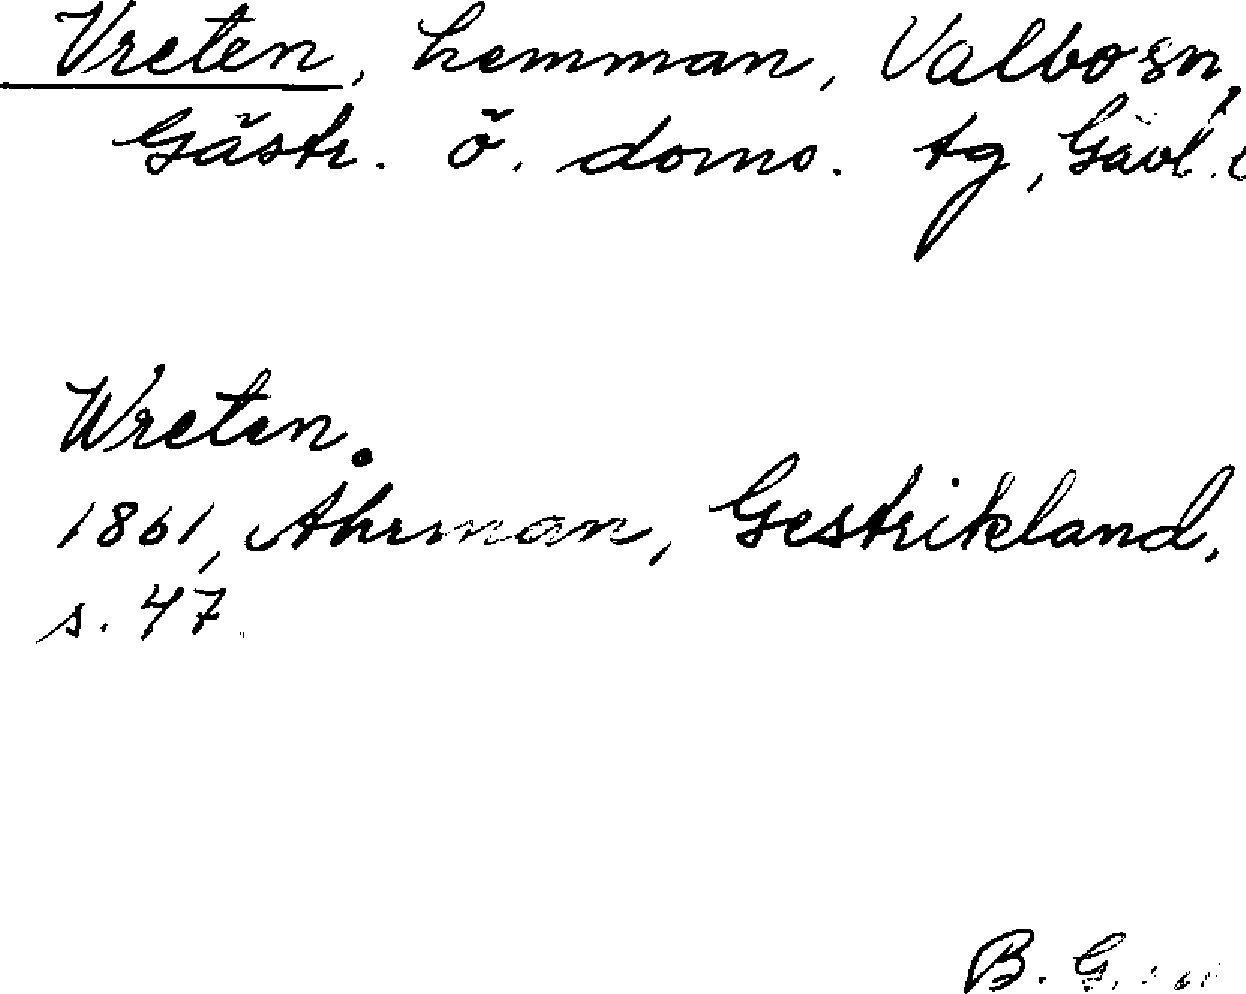 Vreten, hemman, Valbo sn,
Gästr. ö. doms. tg, Gävl.
Wreten.
1861, Ahrman, Gestrikland.
s. 47.
B. G.